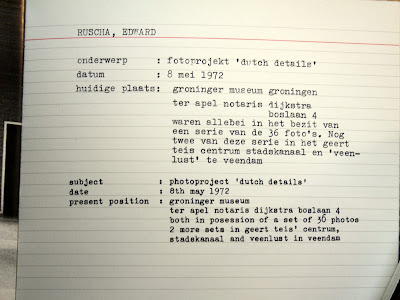 RUSCHA, EDWARD
onderwerp : fotoprojekt 'dutch details'
datum : 8 mei 1972
huidige plaats: groninger museum groningen
ter apel notaris dijkstra
boslaan 4
waren allebei in het bezit van
een serie van de 36 foto's. Nog
twee van deze serie in het geert
teis centrum stadskanaal en 'veen-
lust' te veendam
subject : photoproject 'dutch details'
date : 8th may 1972
present position : groninger museum
ter apel notaris dijkstra boslaan 4
both in posession of a set of 36 photos
2 more sets in geert teis' centrum,
stadskanaal and veenlust in veendam